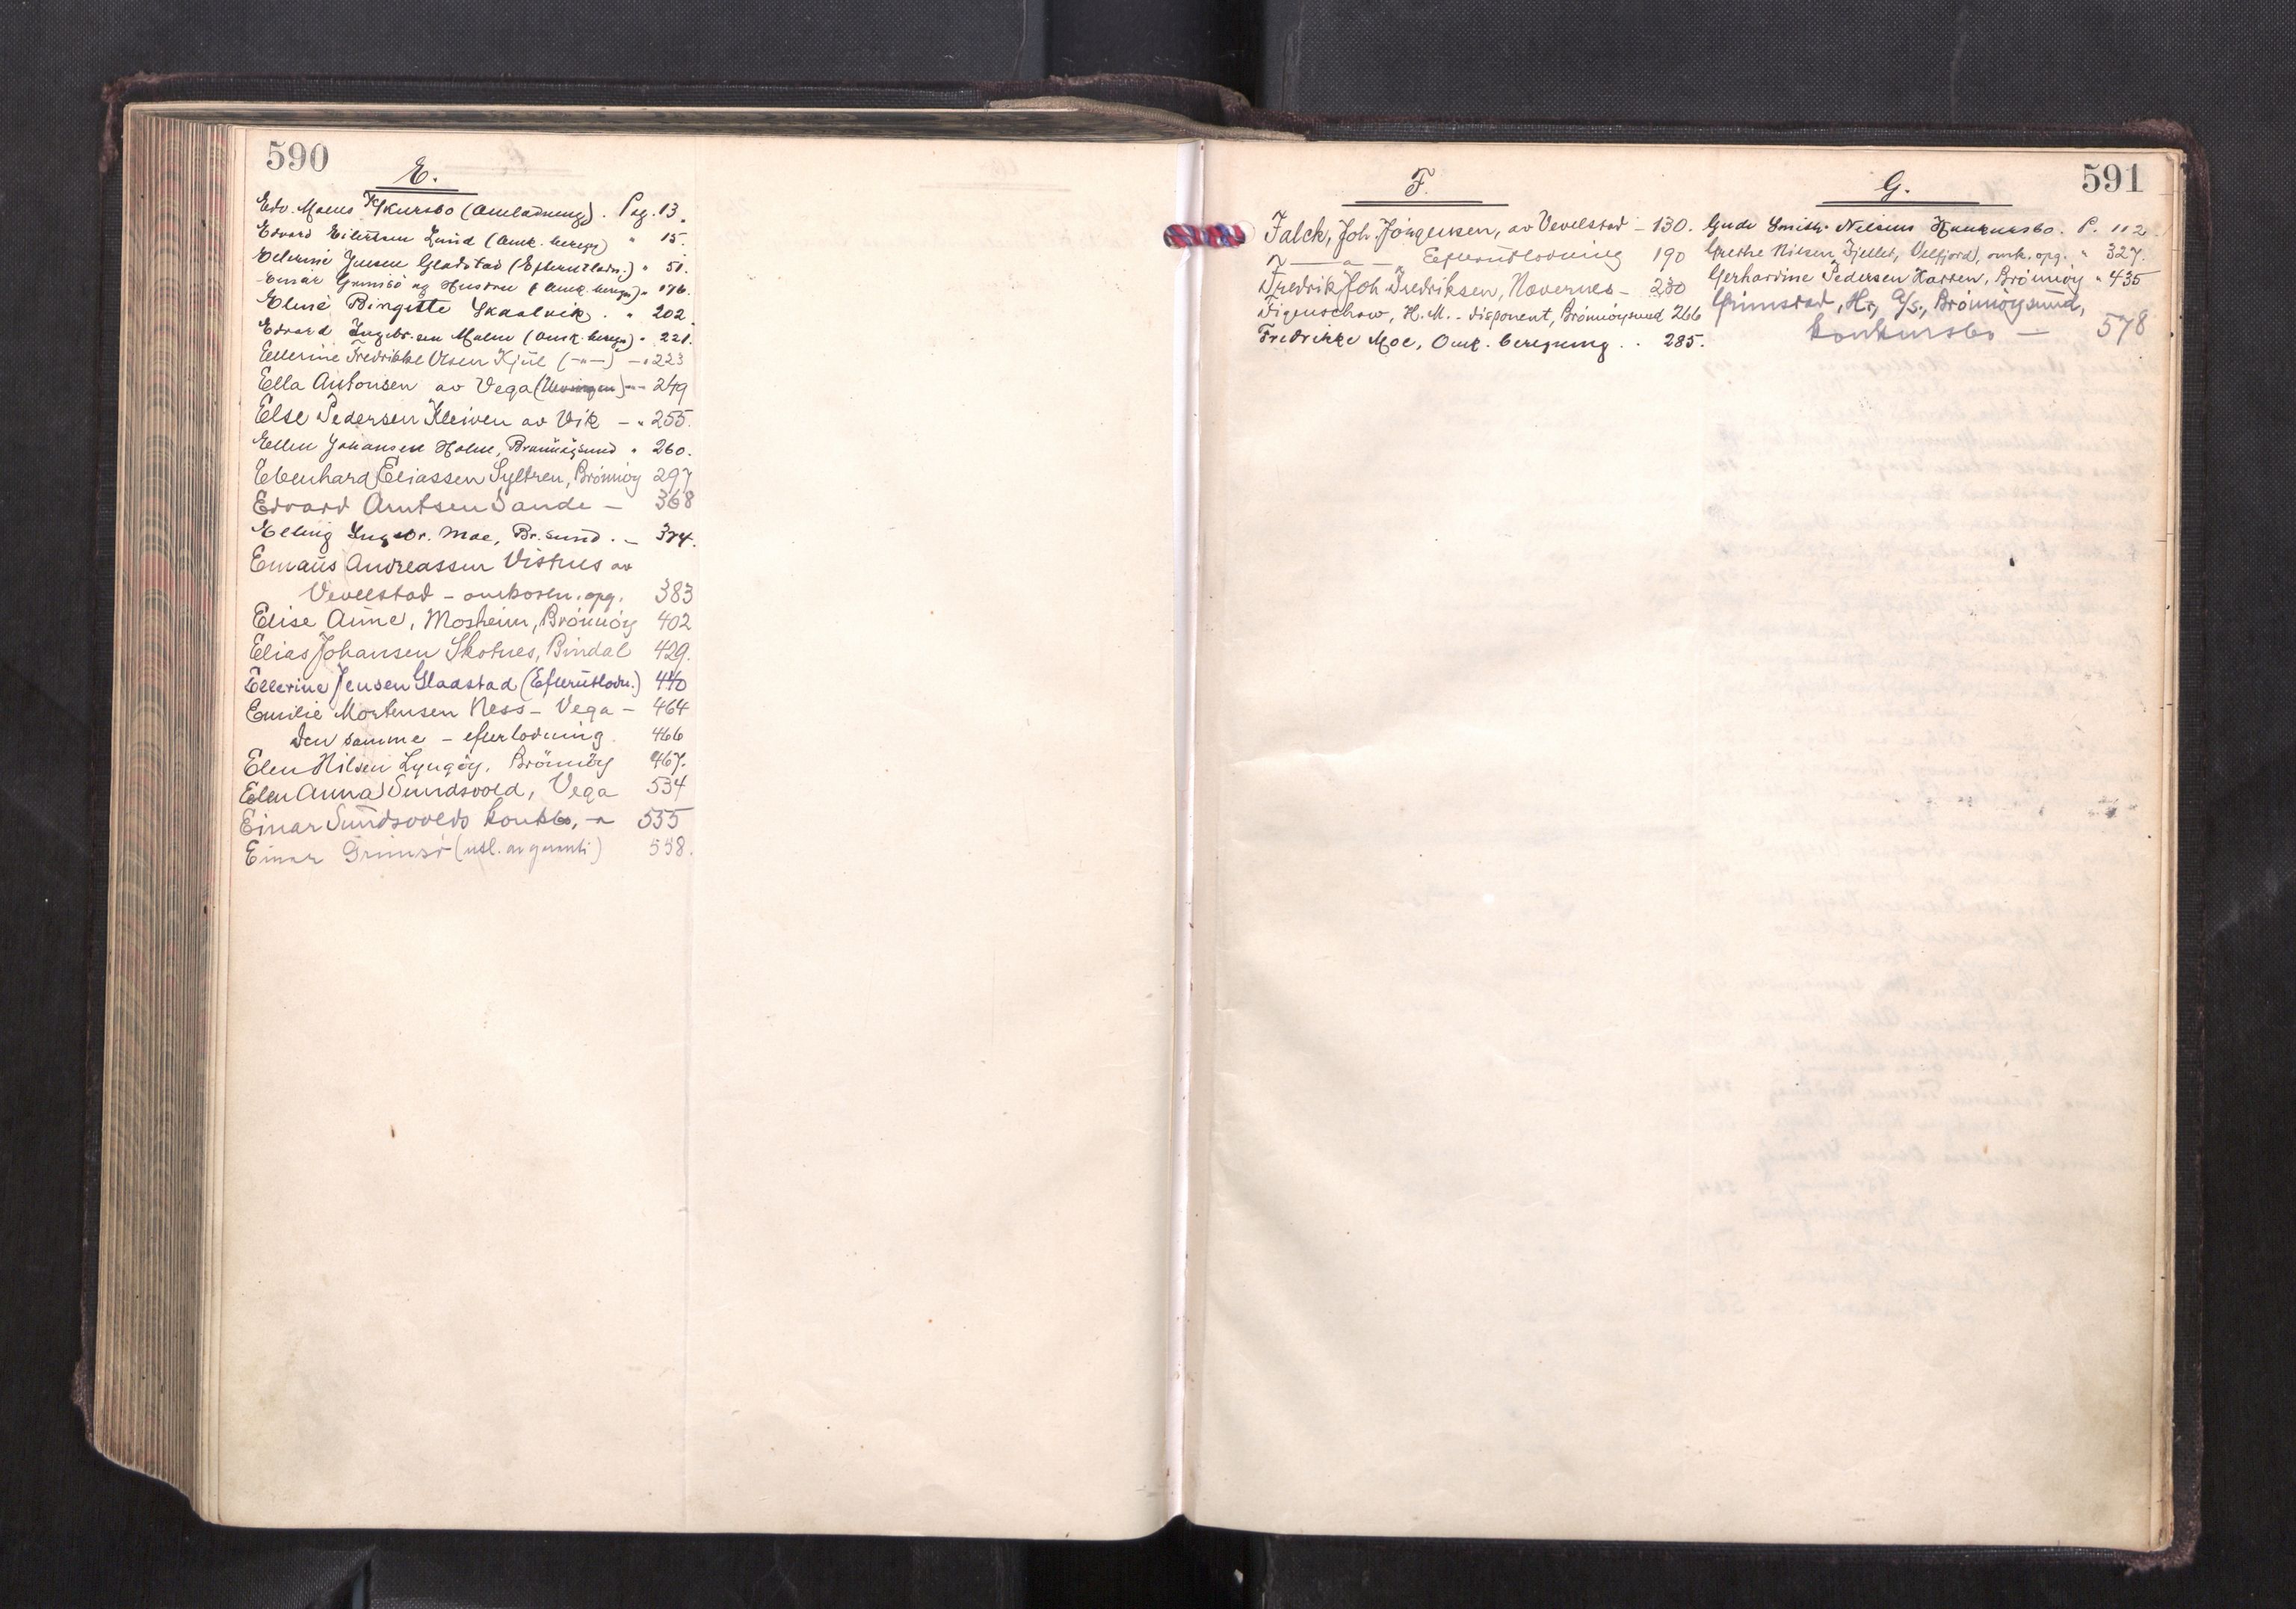 590
E.
Edv. Moens K/kursbo (Omladning). Pag. 13.
Edvard Eilertsen Lund (Omk. beregn) " 15.
Ellerine Jensen Gladstad (Efterutlodn.) " 51.
Einar Grimsö og Hustru (Omk. beregn) " 176.
Eline Birgitte Skaalvik. " 202
Edvard Ingebr.sen Malm (Omk. beregn) " 221.
Ellerine Fredrikke Olsen Kjul (-"-) - " 223
Ella Antonsen av Vega - " - 249
Else Pedersen Kleiven av Vik - " 255.
Ellen Johansen Holm, Brønnøysund " 260.
Edenhard Eliassen Syltren, Brönnöy 297
Edvard Arntsen Sande - 368
Elling Ingebr. Moe, Br.sund. - 374.
Emaus Andreassen Vistnes av
Vevelstad - omkostn. opg. 383
Elise Aune, Mosheim, Brönnöy 402
Elias Johansen Skotnes, Bindal 429.
Ellerine Jensen Gladstad (Efterutlodn.) 440
Emilie Mortensen Ness - Vega - 464
den samme - efterlodning. 466
Elen Nilsen Lyngöy, Brönnöy 467.
Elen Anna Sundsvold, Vega 534
Einar Sundsvolds konkbo, -"- 535
Einar Grimsö (utl. av garanti) 558.
591
F.
Falck, Joh. Jörgensen, av Vevelstad - 130.
" — " — Efterutlodning 190
Fredrik Joh. Fredriksen, Nævernes - 230
Figenschow, H.M. - disponent, Brönnöysund 266
Fredrikke Moe, Omk. beregning. . 285.
G.
Gude Smith-Nelsens Konkursbo. P. 112.
Grethe Nilsen Fjellet, Velfjord, omk. opg. " 327.
Gerhardine Pedersen Karsen, Brönnöy " 435
Grimstad, Hr, A/S., Brönnöysund,
konkursbo — 578